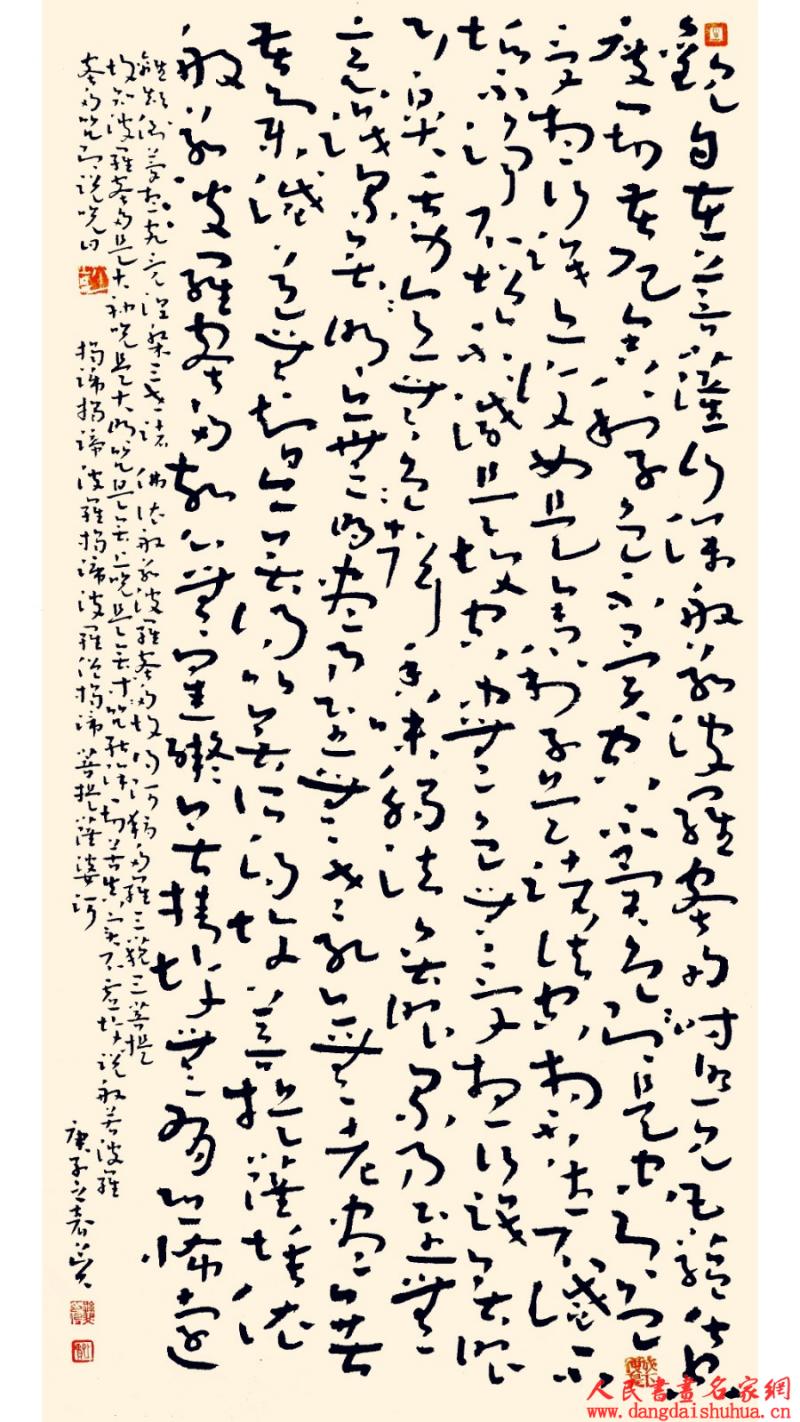 觀自在菩薩行深般若波羅蜜多時照見五蘊皆空
度一切苦厄舍利子色不異空空不異色色即是空空即是色
受想行識亦復如是舍利子是諸法空相不生不滅不
垢不淨不增不減是故空中無色無受想行識無眼
耳鼻舌身意無色聲香味觸法無眼界乃至無
意識界無無明亦無無明盡乃至無老死亦無老死盡無
苦集滅道無智亦無得以無所得故菩提薩埵依
般若波羅蜜多故心無罣礙無罣礙故無有恐怖遠
離顛倒夢想究竟涅槃三世諸佛依般若波羅蜜多故得阿耨多羅三藐三菩提
故知波羅蜜多是大神咒是大明咒是無上咒是無等等咒能除一切苦真實不虛故說般若波羅
蜜多咒即說咒曰
揭諦揭諦波羅揭諦波羅僧揭諦菩提薩婆訶
庚子立春
人民書畫名家網
www.dangdaishuhua.cn